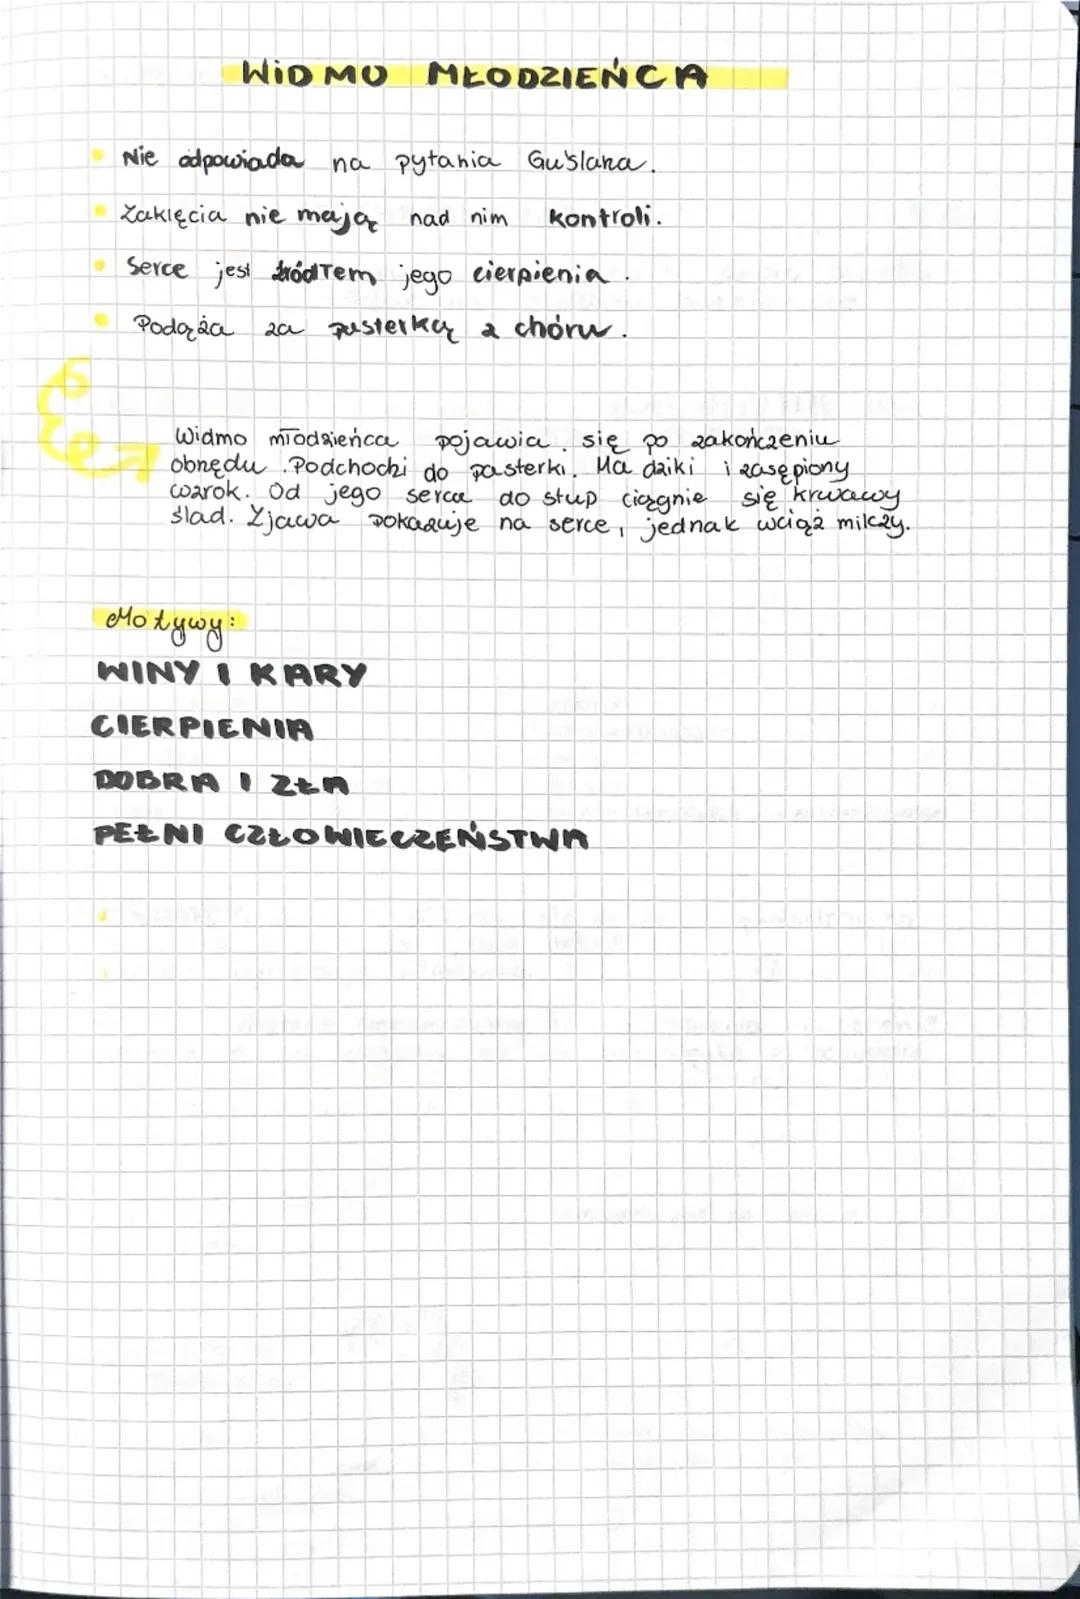 WIDMO MŁODZIEŃCA
Nie odpowiada na pytania Guślana.
Zaklęcia nie mają nad nim kontroli.
Serce jest źródłem jego cierpienia.
Podąża za pasterką z chóru.
Widmo młodzieńca pojawia się po zakończeniu
obrzędu. Podchodzi do pasterki. Ma dziki i zasępiony
wzrok. Od jego serca do stup ciągnie się krwawy
ślad. Zjawa pokazuje na serce, jednak wciąż milczy.
Motywy:
WINY I KARY
CIERPIENIA
DOBRA I ZŁA
PEŁNI CZŁOWIECZEŃSTWA